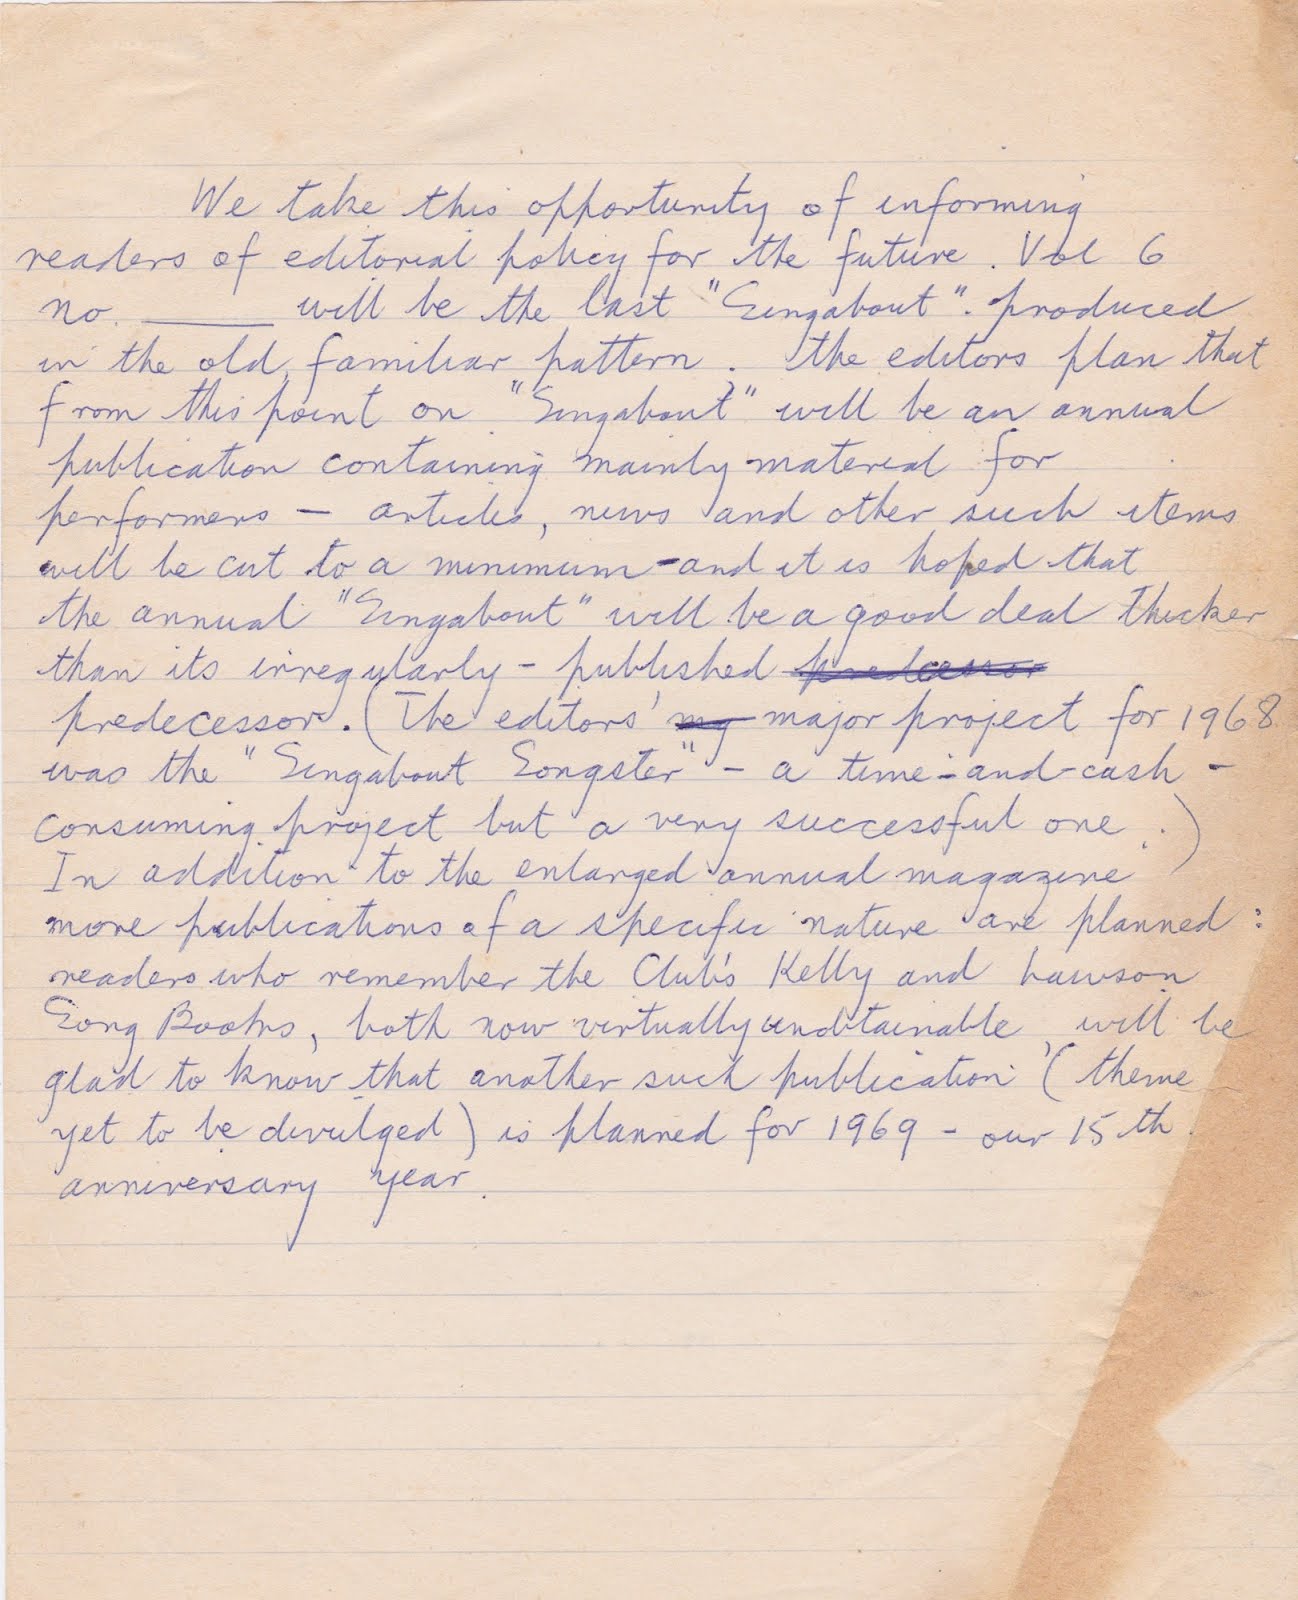 We take this opportunity of informing
readers of editorial policy for the future. Vol 6
no. _____ will be the last "Singabout". produced
in the old, familiar pattern. The editors plan that
from this point on "Singabout" will be an annual
publication containing mainly material for
performers — articles, news and other such items
will be cut to a minimum - and it is hoped that
the annual "Singabout" will be a good deal thicker
than its irregularly - published predecessor
predecessor. (The editors' my major project for 1968
was the "Singabout Songster" - a time-and-cash-
consuming project but a very successful one.)
In addition to the enlarged annual magazine
more publications of a specific nature are planned:
readers who remember the Club's Kelly and Lawson
Song Books, both now virtually unobtainable, will be
glad to know that another such publication (theme
yet to be divulged) is planned for 1969 - our 15th
anniversary year.